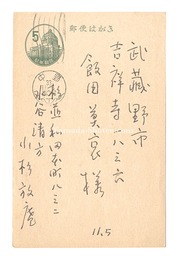 郵便はがき
5
武蔵野市
吉祥寺八三六
飯田莫哀様
杉並和田本町八三二
水谷清方
小杉放庵
11.5